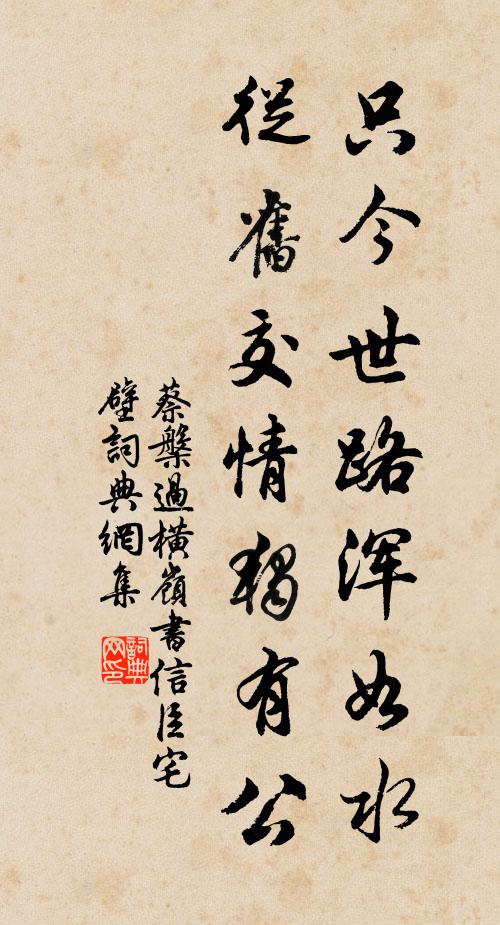 只今世路浑如水
從舊交情獨有公
蔡槃過横嶺書信臣宅
壁詞典網集
詞典网印